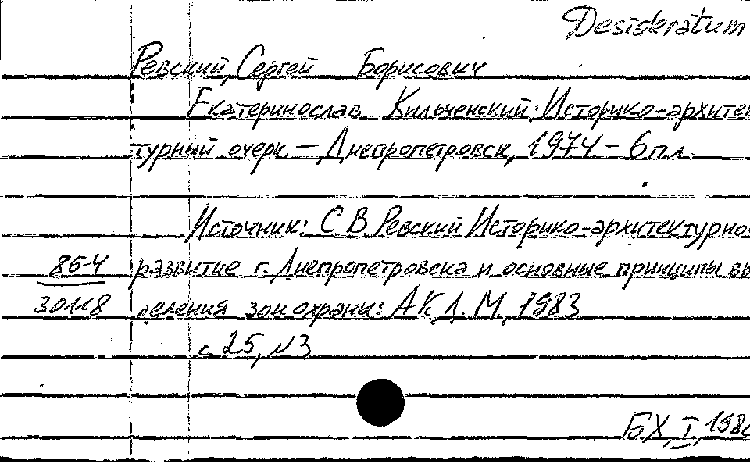 Desideratum
Ревский, Сергей Борисович
Екатеринослав Кильченский: Историко-архитек
турный очерк. – Днепропетровск, 1974 – 6 п.л.
Источник: С.В. Ревский Историко-архитектурное
86-4 развитие г. Днепропетровска и основные принципы вы
30118 деления зон охраны: АКД. М., 1983
с. 25, №3
БХ, I, 198